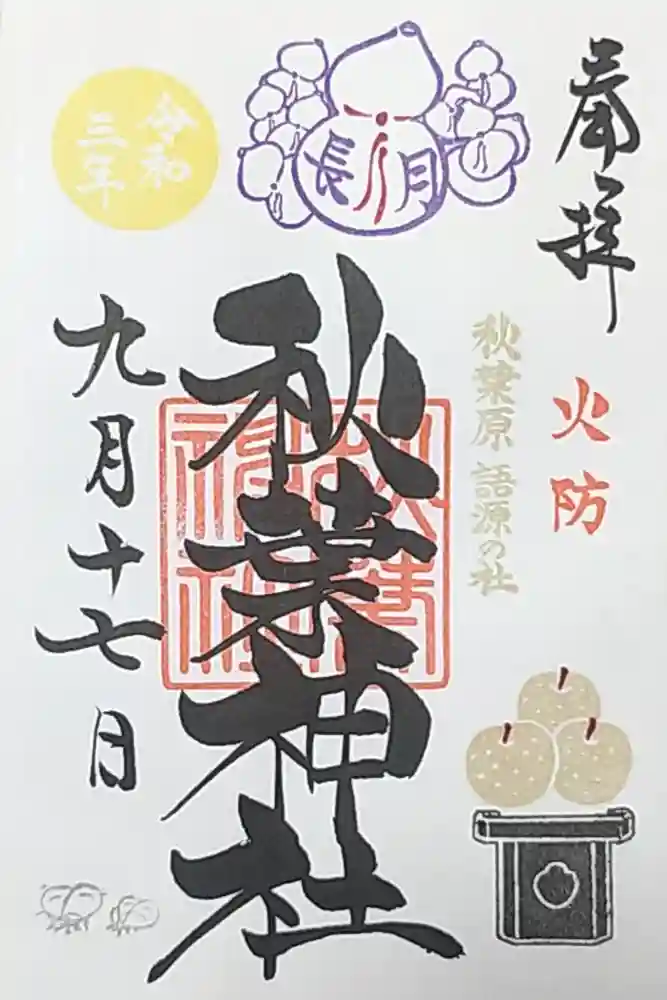 奉拝
火防
秋葉原 語源の社
長月
秋葉神社
令和
三年
九月十七日